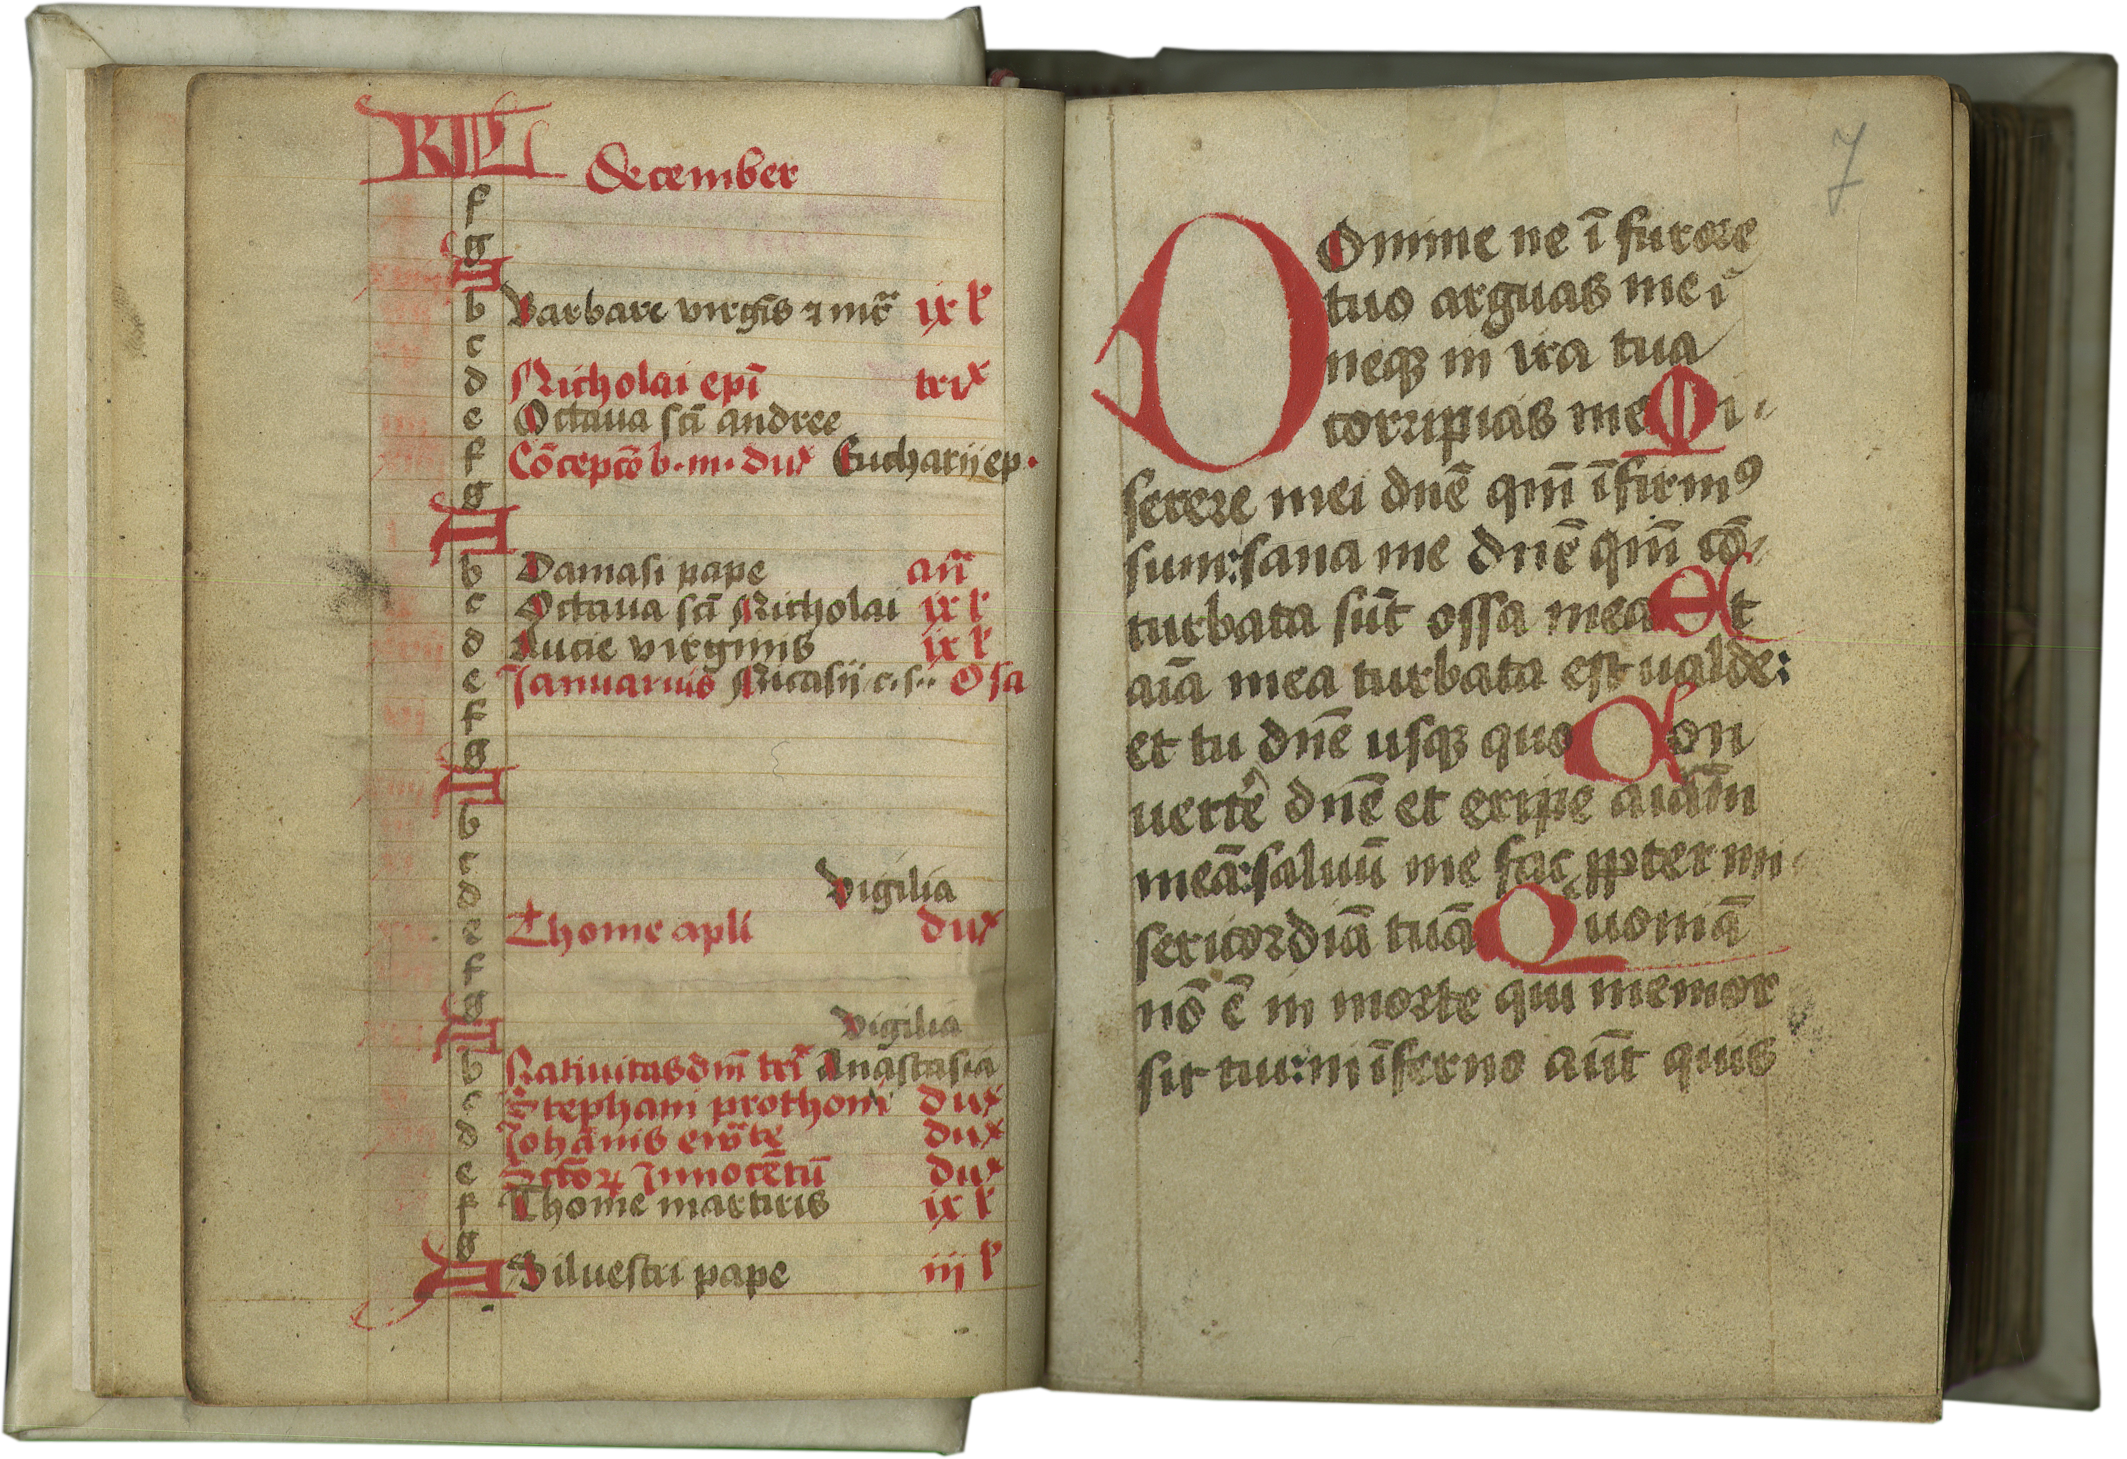 KL December
f
g
A
b Barbare virgīs ⁊ mr̄ ix l
c
d Nicholai epī trix
e Octaua scī andree
f Cōcepcō b. m. dux Eucharij ep.
g
A
b Damasi pape añ
c Octaua scī Nicholai ix l
d Lucie virginis ix l
e Ianuarius Nicasij c. s.. O sa
f
g
A
b
c
d Vigilia
e Thome apli dux
f
g
A Vigilia
b Natiuitas dn̄i tri Anastasia
c Stephani prothom dux
d Iohānis ewāte dux
e Sctōꝝ Innocētū dux
f Thome martiris ix l
g
A Siluestri pape iij l
7
Domine ne ī furore
tuo arguas me ⁊
neqꝫ in ira tua
corripias me Mi-
serere mei dn̄e qm̄ īfirmꝰ
sum: sana me dn̄e qm̄ cō-
turbata sūt ossa mea Et
aīa mea turbata est ualde:
et tu dn̄e usqꝫ quo Con
uertē dn̄e et eripe aīam
meā: saluū me fac ꝓpter mi-
sericordiā tuā Quoniā
nō ē in morte qui memor
sit tui: in īferno aūt quis